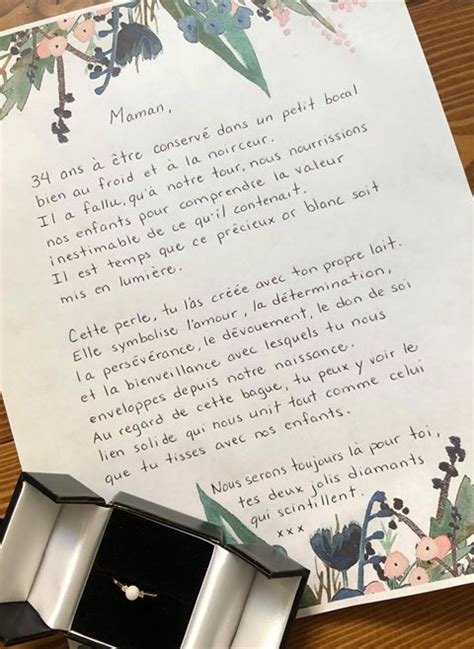 Maman,
34 ans à être conservé dans un petit bocal
bien au froid et à la noirceur.
Il a fallu, qu'à notre tour, nous nourrissions
nos enfants pour comprendre la valeur
inestimable de ce qu'il contenait.
Il est temps que ce précieux or blanc soit
mis en lumière.
Cette perle, tu l'as créée avec ton propre lait.
Elle symbolise l'amour, la détermination,
la persévérance, le dévouement, le don de soi
et la bienveillance avec lesquels tu nous
enveloppes depuis notre naissance.
Au regard de cette bague, tu peux y voir le
lien solide qui nous unit tout comme celui
que tu tisses avec nos enfants.
Nous serons toujours là pour toi,
tes deux jolis diamants
qui scintillent.
xxx